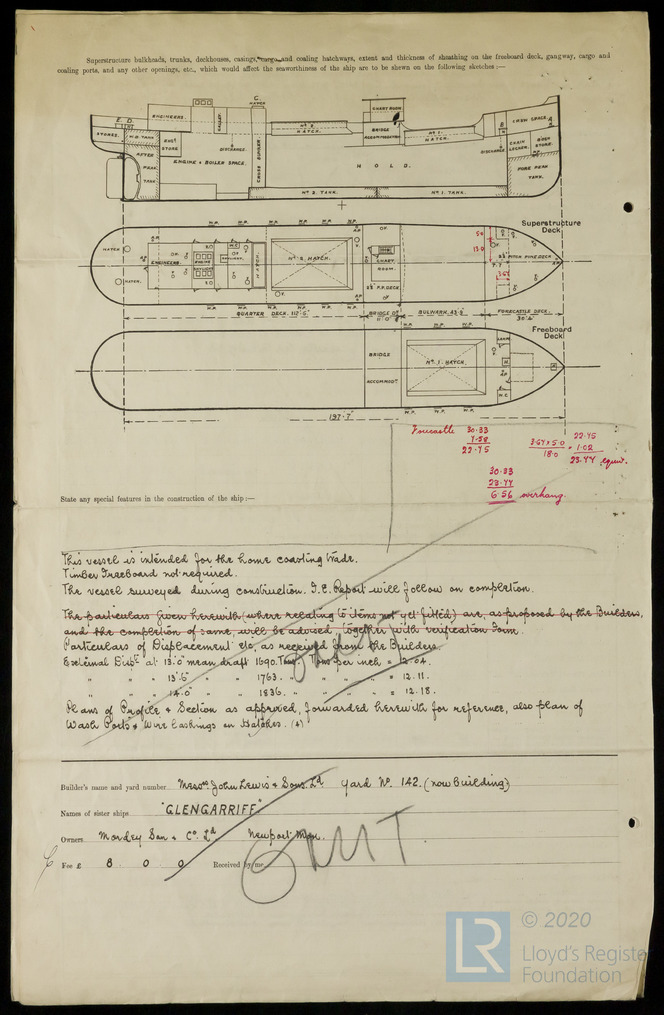 Superstructure bulkheads, trunks, deckhouses, casings, cargo and coaling hatchways, extent and thickness of sheathing on the freeboard deck, gangway, cargo and
coaling ports, and any other openings, etc., which would affect the seaworthiness of the ship are to be shewn on the following sketches :—
CHART ROOM
BRIDGE
ENGINEERS.
E. D.
STORES.
W.B. TANK
AFTER
PEAK
TANK
ENG^RS
STORE
ENGINE & BOILER SPACE.
DISCHARGE.
CROSS BUNKER
No 2.
HATCH.
No 1.
HATCH.
HOLD.
No 2. TANK.
No 1. TANK.
CREW SPACE.
A
B
DISCHARGE
CHAIN
LOCKER.
BOSN
STORE.
FORE PEAK
TANK.
Superstructure
Deck
HATCH
ENGINEERS.
ENGINE
SKYLIGHT
W.C.
HATCH
No 2. HATCH.
CHART
ROOM.
2½" P.P. DECK
5.0
18.0
3.64
2½" PITCH PINE DECK
QUARTER DECK. 112'.6"
BRIDGE DK
11'.0"
BULWARK. 43'.9"
FORECASTLE DECK.
30'.4"
Freeboard
Deck
BRIDGE
ACCOMMODn.
No 1. HATCH.
LAMPS
W.C.
197'.7"
Forecastle 30.33
7.58
22.75
3.64 x 5.0
18.0
22.75
1.02
23.77 equiv.
30.33
23.77
6.56 overhang.
State any special features in the construction of the ship :—
This vessel is intended for the home coasting trade.
Timber Freeboard not required.
The vessel surveyed during construction. F.E. Report will follow on completion.
The particulars given herewith (where relating to items not yet fitted) are, as proposed by the Builders,
and the completion of same, will be advised, together with verification Form.
Particulars of Displacement etc, as received from the Builders.
External Displt at 13'.0" mean draft 1690. Tons. Tons per inch = 12.04.
" " 13'.6" " " 1763. " " " = 12.11.
" " 14.0" " " 1836. " " " = 12.18.
Plans of Profile & Section as approved, forwarded herewith for reference, also plan of
Wash Ports & Wire Lashings on Hatches. (4)
Builder's name and yard number Messrs John Lewis & Sons. Ld Yard No. 142. (now Building)
Names of sister ships "GLENGARRIFF"
Owners Mordey Son & Co. Ld Newport Mon.
Fee £ 8 0 0 Received by me,
OMIT
LR
© 2020
Lloyd's Register
Foundation